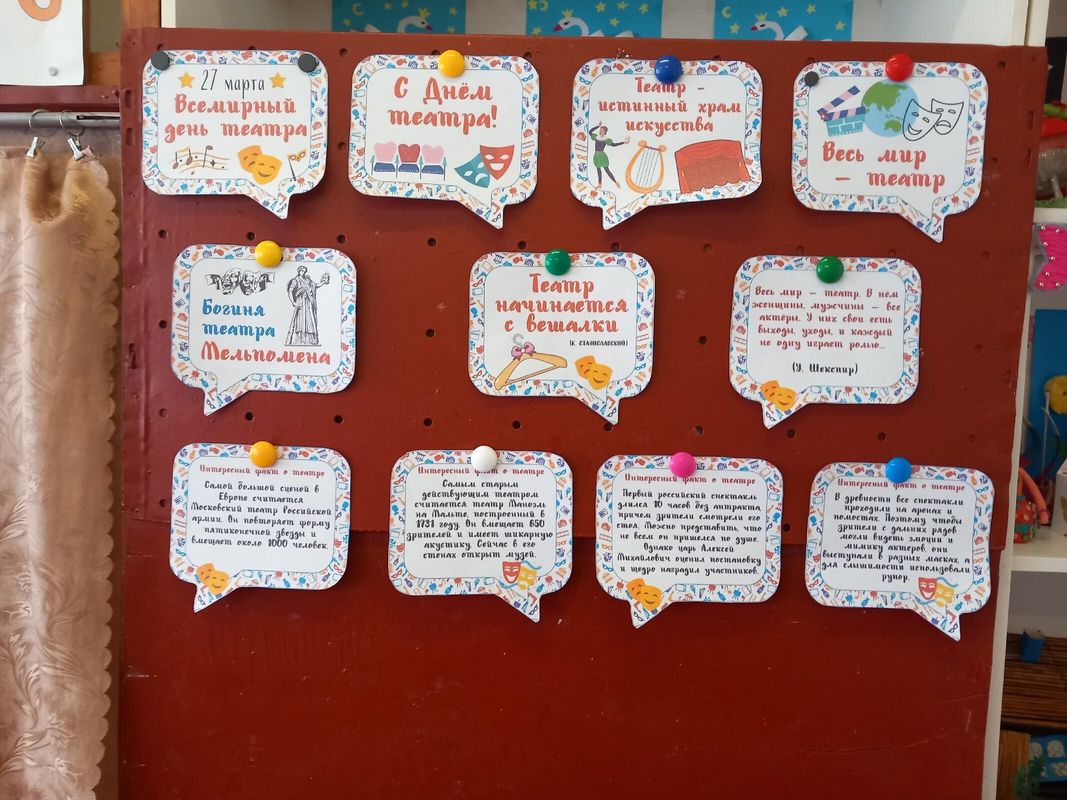 27 марта
Всемирный
день театра
С Днём
театра!
Театр -
истинный храм
искусства
Весь мир
- театр
Богиня
театра
Мельпомена
Театр
начинается
с вешалки
(К. Станиславский)
Весь мир - театр. В нём
женщины, мужчины - все
актёры. У них свои есть
выходы, уходы, и каждый
не одну играет ролью...
(У. Шекспир)
Интересный факт о театре
Самой большой сценой в
Европе считается
Московский театр Российской
армии. Он повторяет форму
пятиконечной звезды и
вмещает около 1000 человек.
Интересный факт о театре
Самым старым
действующим театром
считается театр Маноэль
на Мальте, построенный в
1731 году. Он вмещает 650
зрителей и имеет шикарную
акустику. Сейчас в его
стенах открыт музей.
Интересный факт о театре
Первый российский спектакль
длился 10 часов без антракта,
причем зрители смотрели его
стоя. Можно представить, что
не всем он пришелся по душе.
Однако царь Алексей
Михайлович оценил постановку
и щедро наградил участников
Интересный факт о театре
В древности все спектакли
проходили на аренах и
помостах. Поэтому чтобы
зрители с дальних рядов
могли видеть эмоции и
мимику актеров, они
выступали в разных масках, а
для слышимости использовали
рупор.